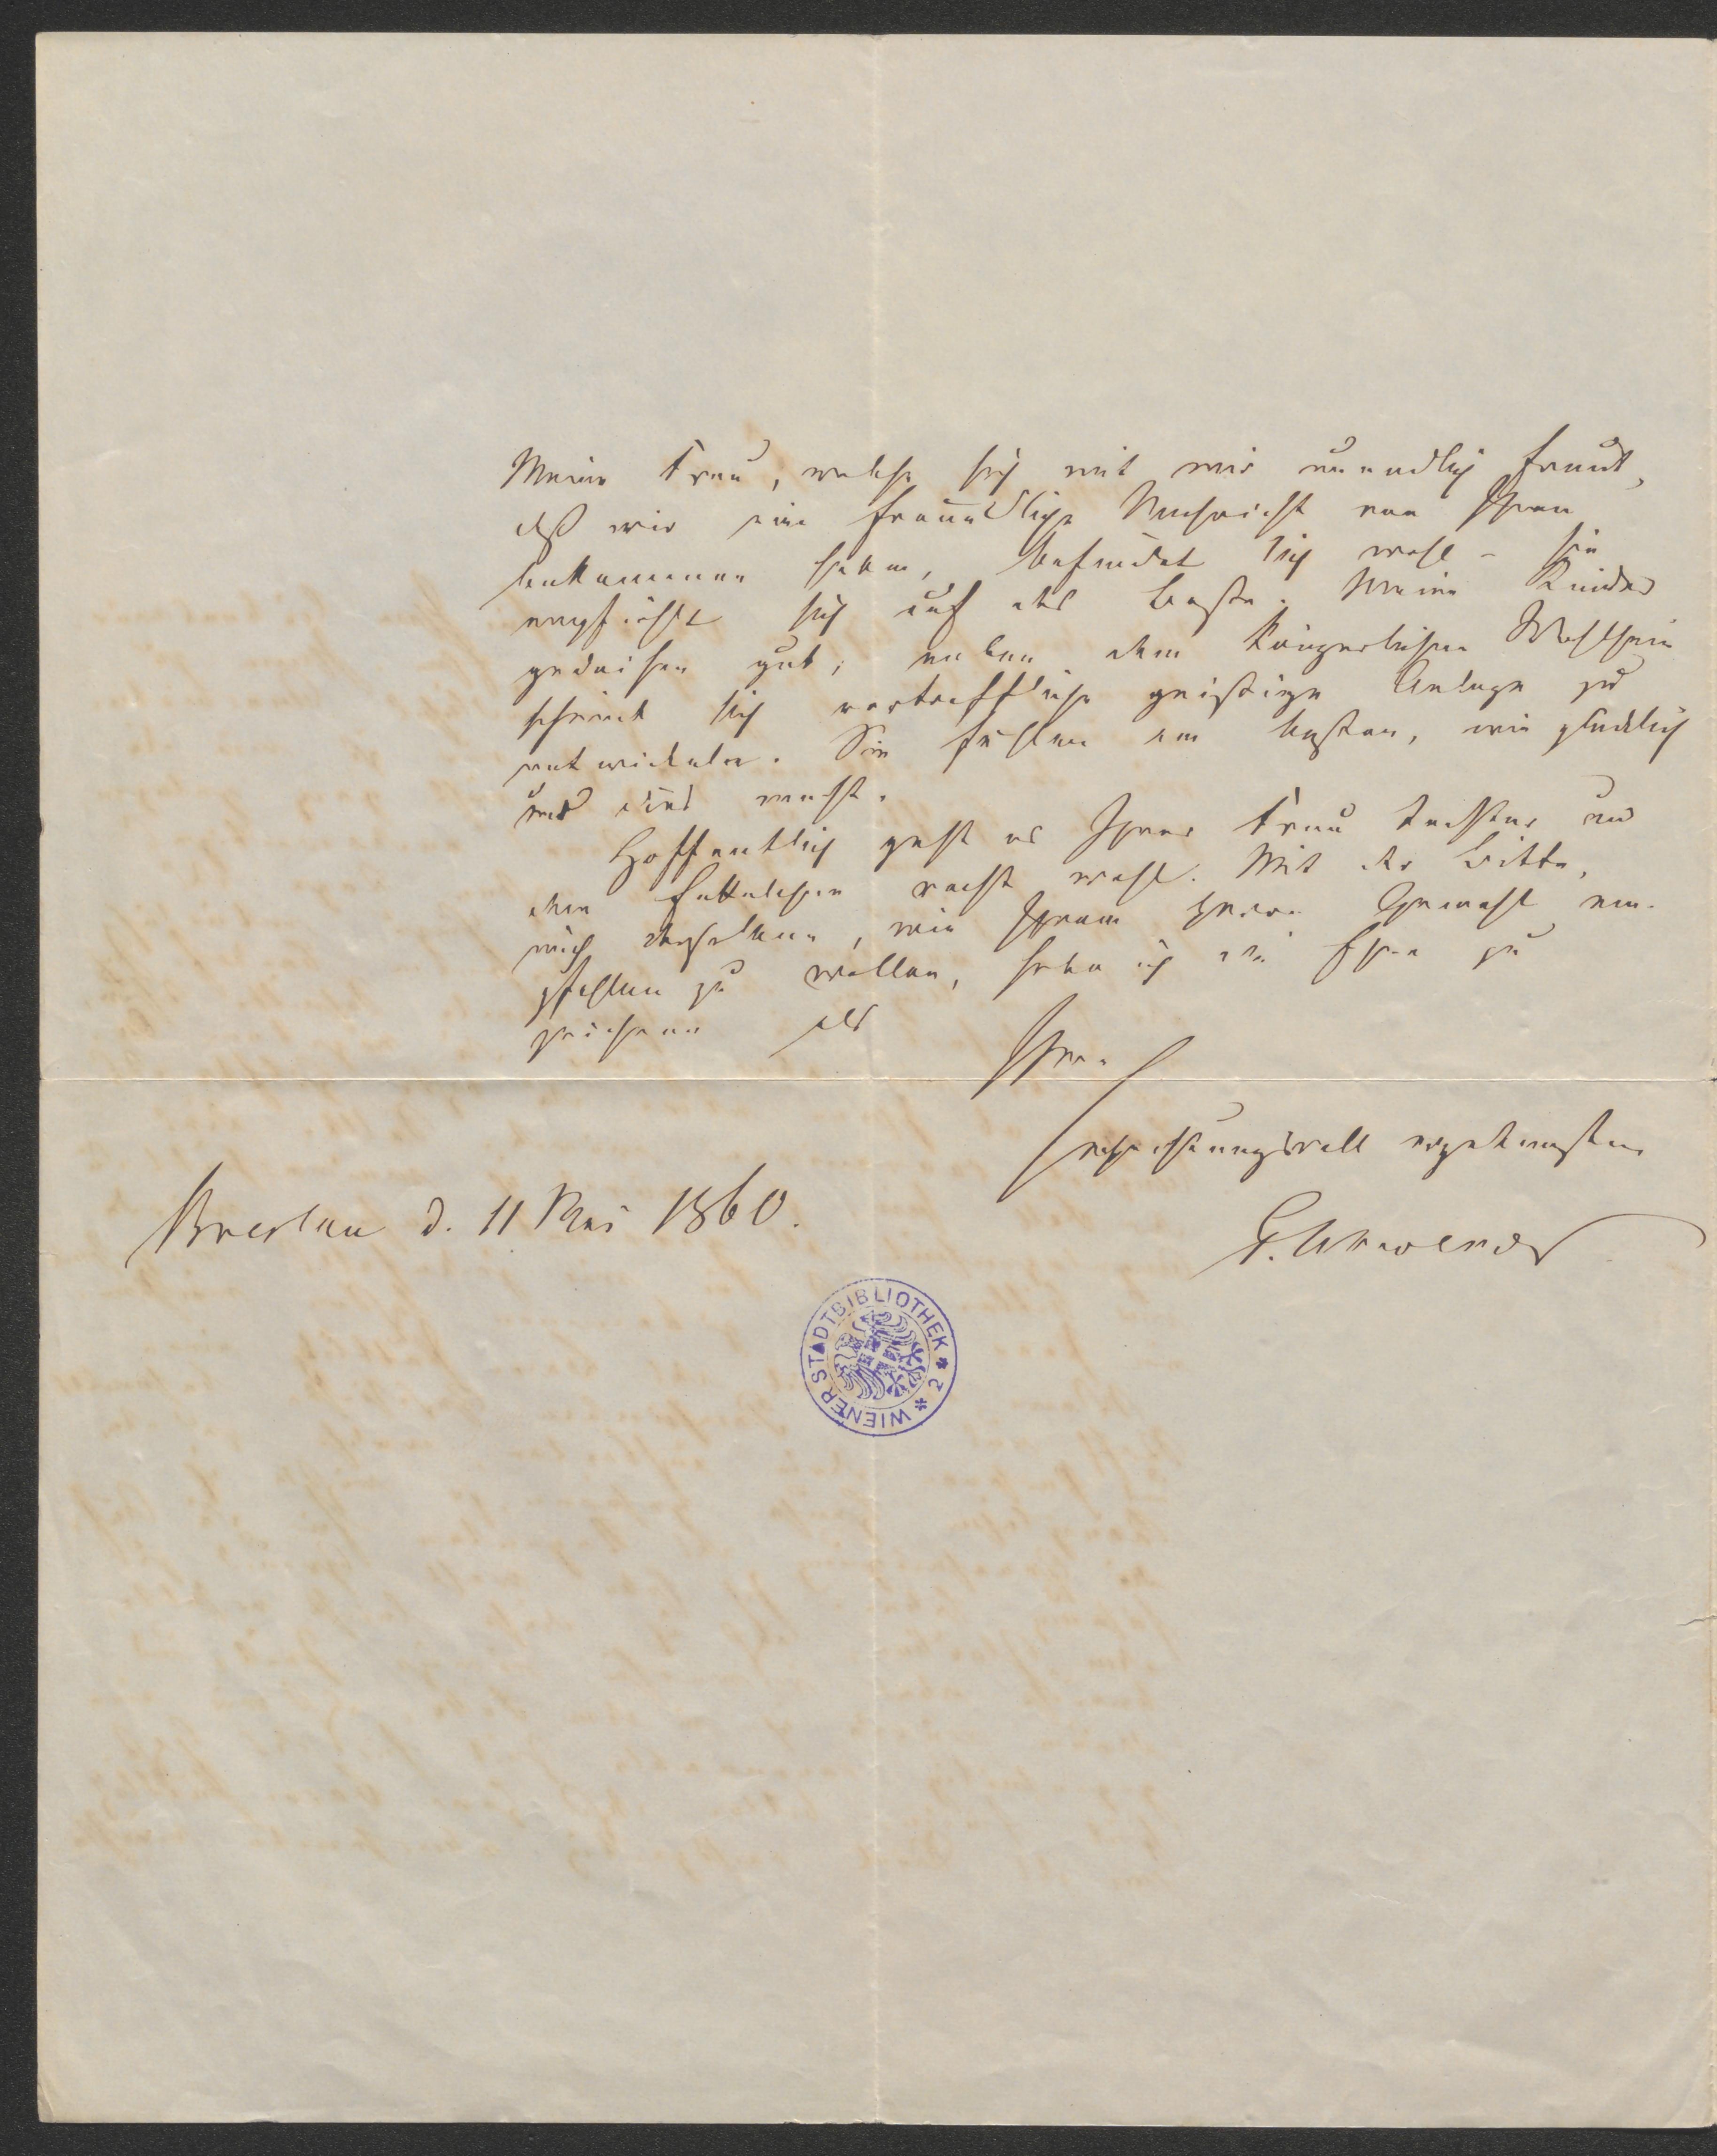 Meine Frau, welche sich mit mir unendlich freut,
daß wir eine freundliche Nachricht von Ihnen
bekommen haben, befindet sich wohl – sie
empfiehlt sich auf das Beste. Meine Kinder
gedeihen gut; neben dem körperlichen Wohlsein
scheint sich vortreffliche geistige Anlage zu
entwickeln. Sie fühlen am besten, wie glücklich
uns dies macht.
Hoffentlich geht es Ihrer Frau Tochter und
dem recht wohl. Mit der Bitte,
mich derselben, wie Ihrem Herrn Gemahl em-
pfehlen zu wollen, habe ich die Ehre zu
zeichnen als
Ihren
hochachtungsvoll ergebensten
Breslau d. 11 Mai 1860.
WIENER STADTBIBLIOTHEK * 2 *